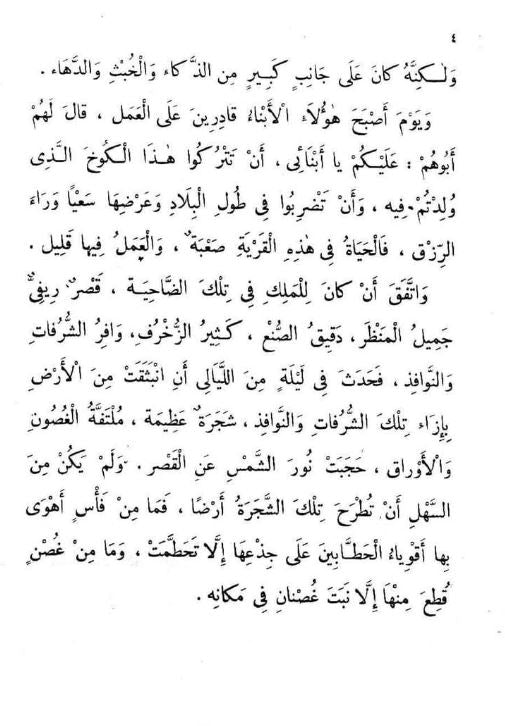 ٤
وَلٰكِنَّهُ كانَ عَلَى جانِبٍ كَبِيرٍ مِن الذَّكاء وَالْخُبْثِ وَالدَّهَاء .
وَيَوْمَ أَصْبَحَ هٰؤُلَاءِ الْأَبْنَاءُ قادِرِينَ عَلَى الْعَمَل ، قالَ لَهُمْ
أَبُوهُمْ : عَلَيْكُمْ يا أَبْنَائِى ، أَنْ تَتْرُكُوا هٰذَا الْكُوخَ الَّذِى
وُلِدْتُمْ فِيه ، وَأَنْ تَضْرِبُوا فِى طُولِ الْبِلَادِ وَعَرْضِهَا سَعْيًا وَرَاءَ
الرِّزْق ، فَالْحَيَاةُ فِى هٰذِهِ الْقَرْيَةِ صَعْبَةٌ ، وَالْعَمَلُ فِيهَا قَلِيل .
وَاتَّفَقَ أَنْ كانَ لِلْمَلِكِ فِى تِلْكَ الضَّاحِيَة ، قَصْرٌ رِيفِىٌّ
جَمِيلُ الْمَنْظَر ، دَقِيقُ الصُّنْع ، كَثِيرُ الزُّخْرُف ، وَافِرُ الشُّرُفَاتِ
وَالنَّوَافِذ ، فَحَدَثَ فِى لَيْلَةٍ مِنَ اللَّيَالِى أَنِ انْبَثَقَتْ مِنَ الْأَرْضِ
بِإِزَاء تِلْكَ الشُّرُفَاتِ وَالنَّوَافِذ ، شَجَرَةٌ عَظِيمَة ، مُلْتَفَّةُ الْغُصُونِ
وَالْأَوْراق ، حَجَبَتْ نُورَ الشَّمْسِ عَنِ الْقَصْر . وَلَمْ يَكُنْ مِنَ
السَّهْلِ أَنْ تُطْرَحَ تِلْكَ الشَّجَرَةُ أَرْضًا ، فَمَا مِنْ فَأْسٍ أَهْوَى
بِها أَقْوِياءُ الْحَطَّابِينَ عَلَى جِذْعِهَا إِلَّا تَحَطَّمَتْ ، وَمَا مِنْ غُصْنٍ
قُطِعَ مِنْهَا إِلَّا نَبَتَ غُصْنانِ فِى مَكانِه .